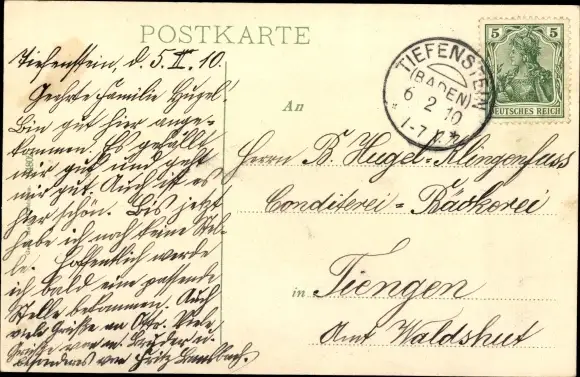 POSTKARTE
Tiefenstein, d. 5. II. 10.
Geehrte Familie Hugel!
Bin gut hier ange-
kommen. Es gefällt
mir gut und geht
mir gut. Auch ist es
hier schön. Bis jetzt
habe ich noch keine Stel-
le. Hoffentlich werde
ich bald eine passende
Stelle bekommen. Auch
viele Grüße an Otto. Viele
Grüße von m. Bruder u.
besonders von Fritz
TIEFENSTEIN
(BADEN)
6 2 10
1-7 N.
5 5
DEUTSCHES REICH
An
Herrn B. Hugel-Klingenfuss
Conditerei = Bäckerei
in Tiengen
Amt Waldshut